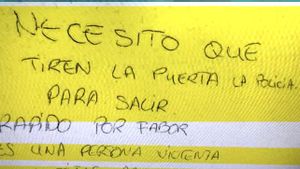 NECESITO QUE
TIREN LA PUERTA LA POLICIA
PARA SALIR
RAPIDO POR FABOR
ES UNA PERSONA VIOLENTA